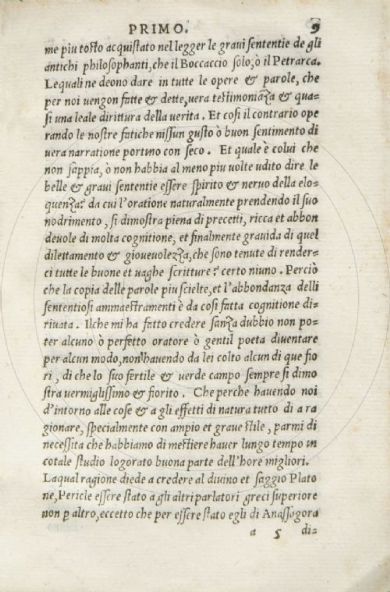 PRIMO. 9
me piu tosto acquistato nel legger le graui sententie de gli
antichi philosophanti, che il Boccaccio solo, ò il Petrarca.
Lequali ne deono dare in tutte le opere & parole, che
per noi uengon fatte & dette, uera testimoniāza & qua-
si una leale dirittura della uerita. Et cosi il contrario ope
rando le nostre fatiche nissun gusto ò buon sentimento di
uera narratione portano con seco. Et quale è colui che
non sappia, ò non habbia al meno piu uolte udito dire le
belle & graui sententie essere spirito & neruo della elo-
quenza? da cui l'oratione naturalmente prendendo il suo
nodrimento, si dimostra piena di precetti, ricca et abbon
deuole di molta cognitione, et finalmente grauida di quel
dilettamento & gioueuolezza, che sono tenute di render-
ci tutte le buone et uaghe scritture? certo niuno. Perciò
che la copia delle parole piu scielte, et l'abbondanza delli
sententiosi ammaestramenti è da cosi fatta cognitione di-
riuata. Ilche mi ha fatto credere sanza dubbio non po-
ter alcuno ò perfetto oratore ò gentil poeta diuentare
per alcun modo, non hauendo da lei colto alcun di que fio
ri, di che lo suo fertile & uerde campo sempre si dimo
stra uermiglissimo & fiorito. Che perche hauendo noi
d'intorno alle cose & a gli effetti di natura tutto dì a ra
gionare, specialmente con ampio et graue stile, parmi di
necessita che habbiamo di mestiere hauer lungo tempo in
cotale studio logorato buona parte dell'hore migliori.
Laqual ragione diede a credere al diuino et saggio Plato
ne, Pericle essere stato a gli altri parlatori greci superiore
non p altro, eccetto che per essere stato egli di Anassagora
a 5 di-